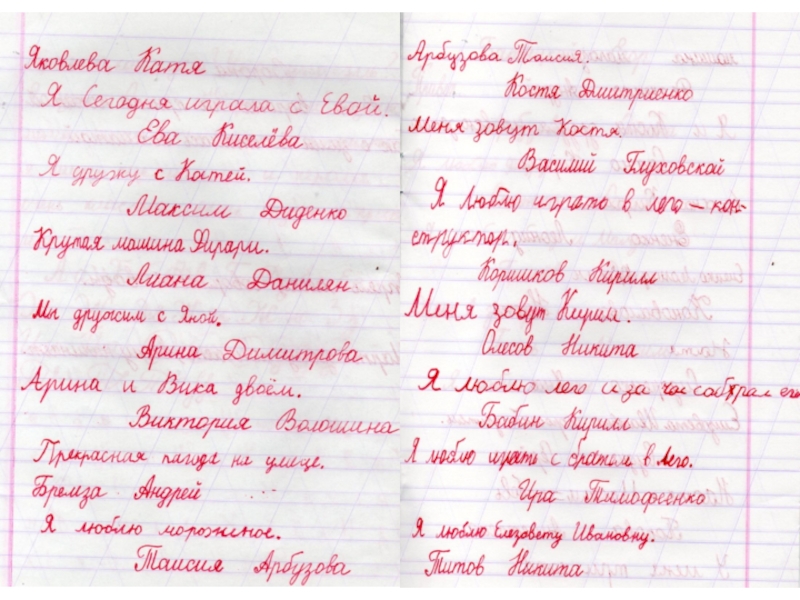 Яковлева Катя
Я Сегодня играла с Евой.
Ева Киселёва
Я дружу с Катей.
Максим Диденко
Крутая машина Фирари.
Лиана Данилян
Мы дружим с Яной.
Арина Димитрова
Арина и Вика двоём.
Виктория Волошина
Прекрасная пагода на улице.
Боремза Андрей
Я люблю мороженое.
Таисия Арбузова
Арбузова Таисия.
Костя Дмитриенко
Меня зовут Костя.
Василий Глуховской
Я Люблю играто в лего – кон-
структор.
Коришков Кирилл
Меня зовут Кирил.
Олесов Никита
Я люблю лего и за час собрал его
Бабин Кирилл
Я люблю играть с братом в Лего.
Ира Тимофеенко
Я люблю Елезовету Ивановну.
Титов Никита